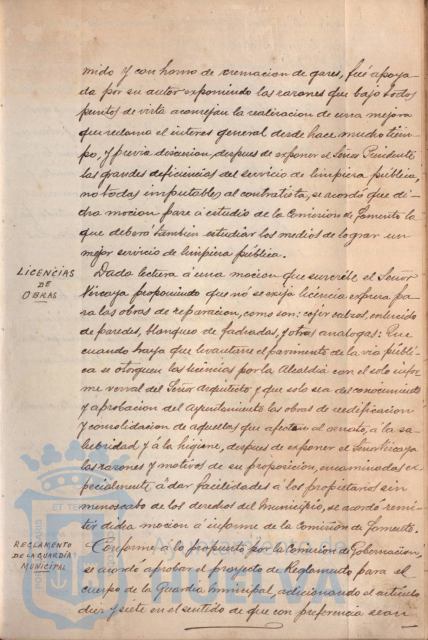 mido y con horno de cremacion de gases, fué apoya-
da por su autor exponiendo las razones que bajo todos
puntos de vista aconsejan la realizacion de una mejora
que reclama el interes general desde hace mucho tiem-
po, y previa discusion, despues de exponer el Señor Presidente
las grandes deficiencias del servicio de limpieza pública,
no todas imputables al contratista, se acordó que di-
cha mocion pase á estudio de la Comision de Fomento la
que deberá tambien estudiar los medios de lograr un
mejor servicio de limpieza pública.
LICENCIAS
DE
OBRAS
Dada lectura á una mocion que suscribe el Señor
Vizcaya proponiendo que no se exija licencia expresa pa-
ra las obras de reparacion, como son: cojer calvos, enlucido
de paredes, blanqueo de fachadas, y otras analogas: Que
cuando haya que levantarse el pavimento de la via públi-
ca se otorguen las licencias por la Alcaldia con el solo infor-
me verbal del Señor Arquitecto y que solo sea del conocimiento
y aprobacion del Ayuntamiento las obras de reedificacion
y consolidacion de aquellas que afecten al ornato, á la sa-
lubridad y á la higiene, despues de exponer el Señor Vizcaya
las razones y motivos de su proposicion, encaminadas es-
pecialmente á dar facilidades á los propietarios sin
menoscabo de los derechos del Municipio, se acordo remi-
tir dicha mocion á informe de la Comision de Fomento.
REGLAMENTO
DE LA GUARDIA
MUNICIPAL
Conforme á lo propuesto por la Comision de Gobernacion,
se acordó aprobar el proyecto de Reglamento para el
cuerpo de la Guardia Municipal, adicionando el artículo
diez y siete en el sentido de que con preferencia sean
Ayuntamiento de
HUELVA